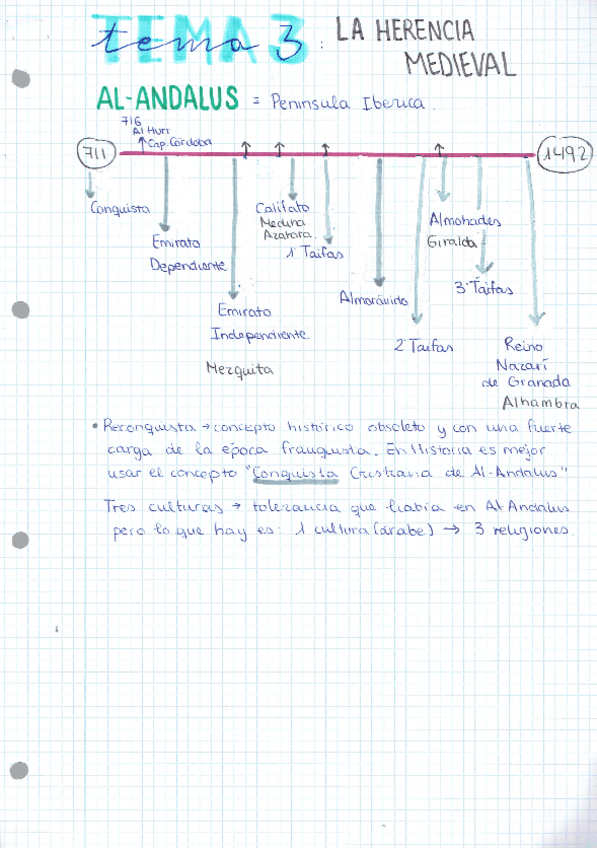 TEMA 3: LA HERENCIA
tema
MEDIEVAL
AL-ANDALUS = Península Iberica.
716
Al Hurr
Cap. Córdoba
711
1492
Conquista
Emirato
Dependiente
Emirato
Independiente
Mezquita
Califato
Medina
Azahara
1ª Taifas
Almorávide
2ª Taifas
Almohades
Giralda
3ª Taifas
Reino
Nazarí
de Granada
Alhambra
• Reconquista → concepto histórico obsoleto y con una fuerte
carga de la época franquista. En Historia es mejor
usar el concepto "Conquista Cristiana de Al-Andalus"
Tres culturas → tolerancia que había en Al Andalus
pero lo que hay es: 1 cultura (árabe) → 3 religiones